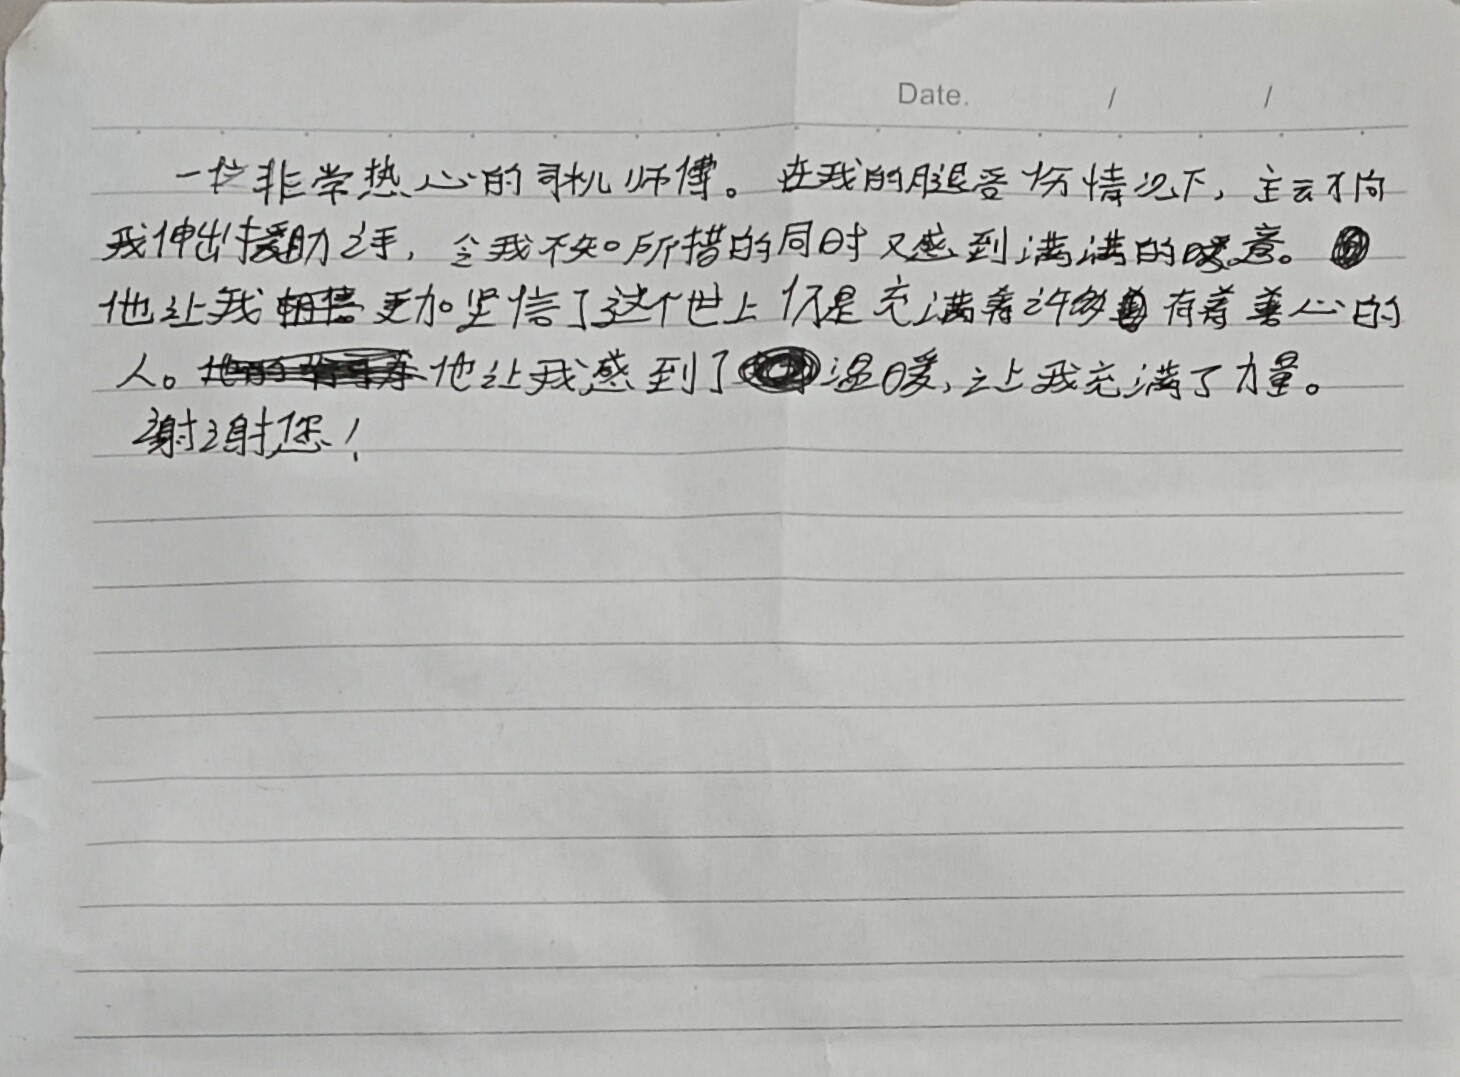 Date. / /
一位非常热心的司机师傅。在我的腿受伤情况下，主动向
我伸出援助之手，令我不知所措的同时又感到满满的暖意。
他让我更加坚信了这个世上仍是充满着许多有着善心的
人。他让我感到了温暖，让我充满了力量。
谢谢您！